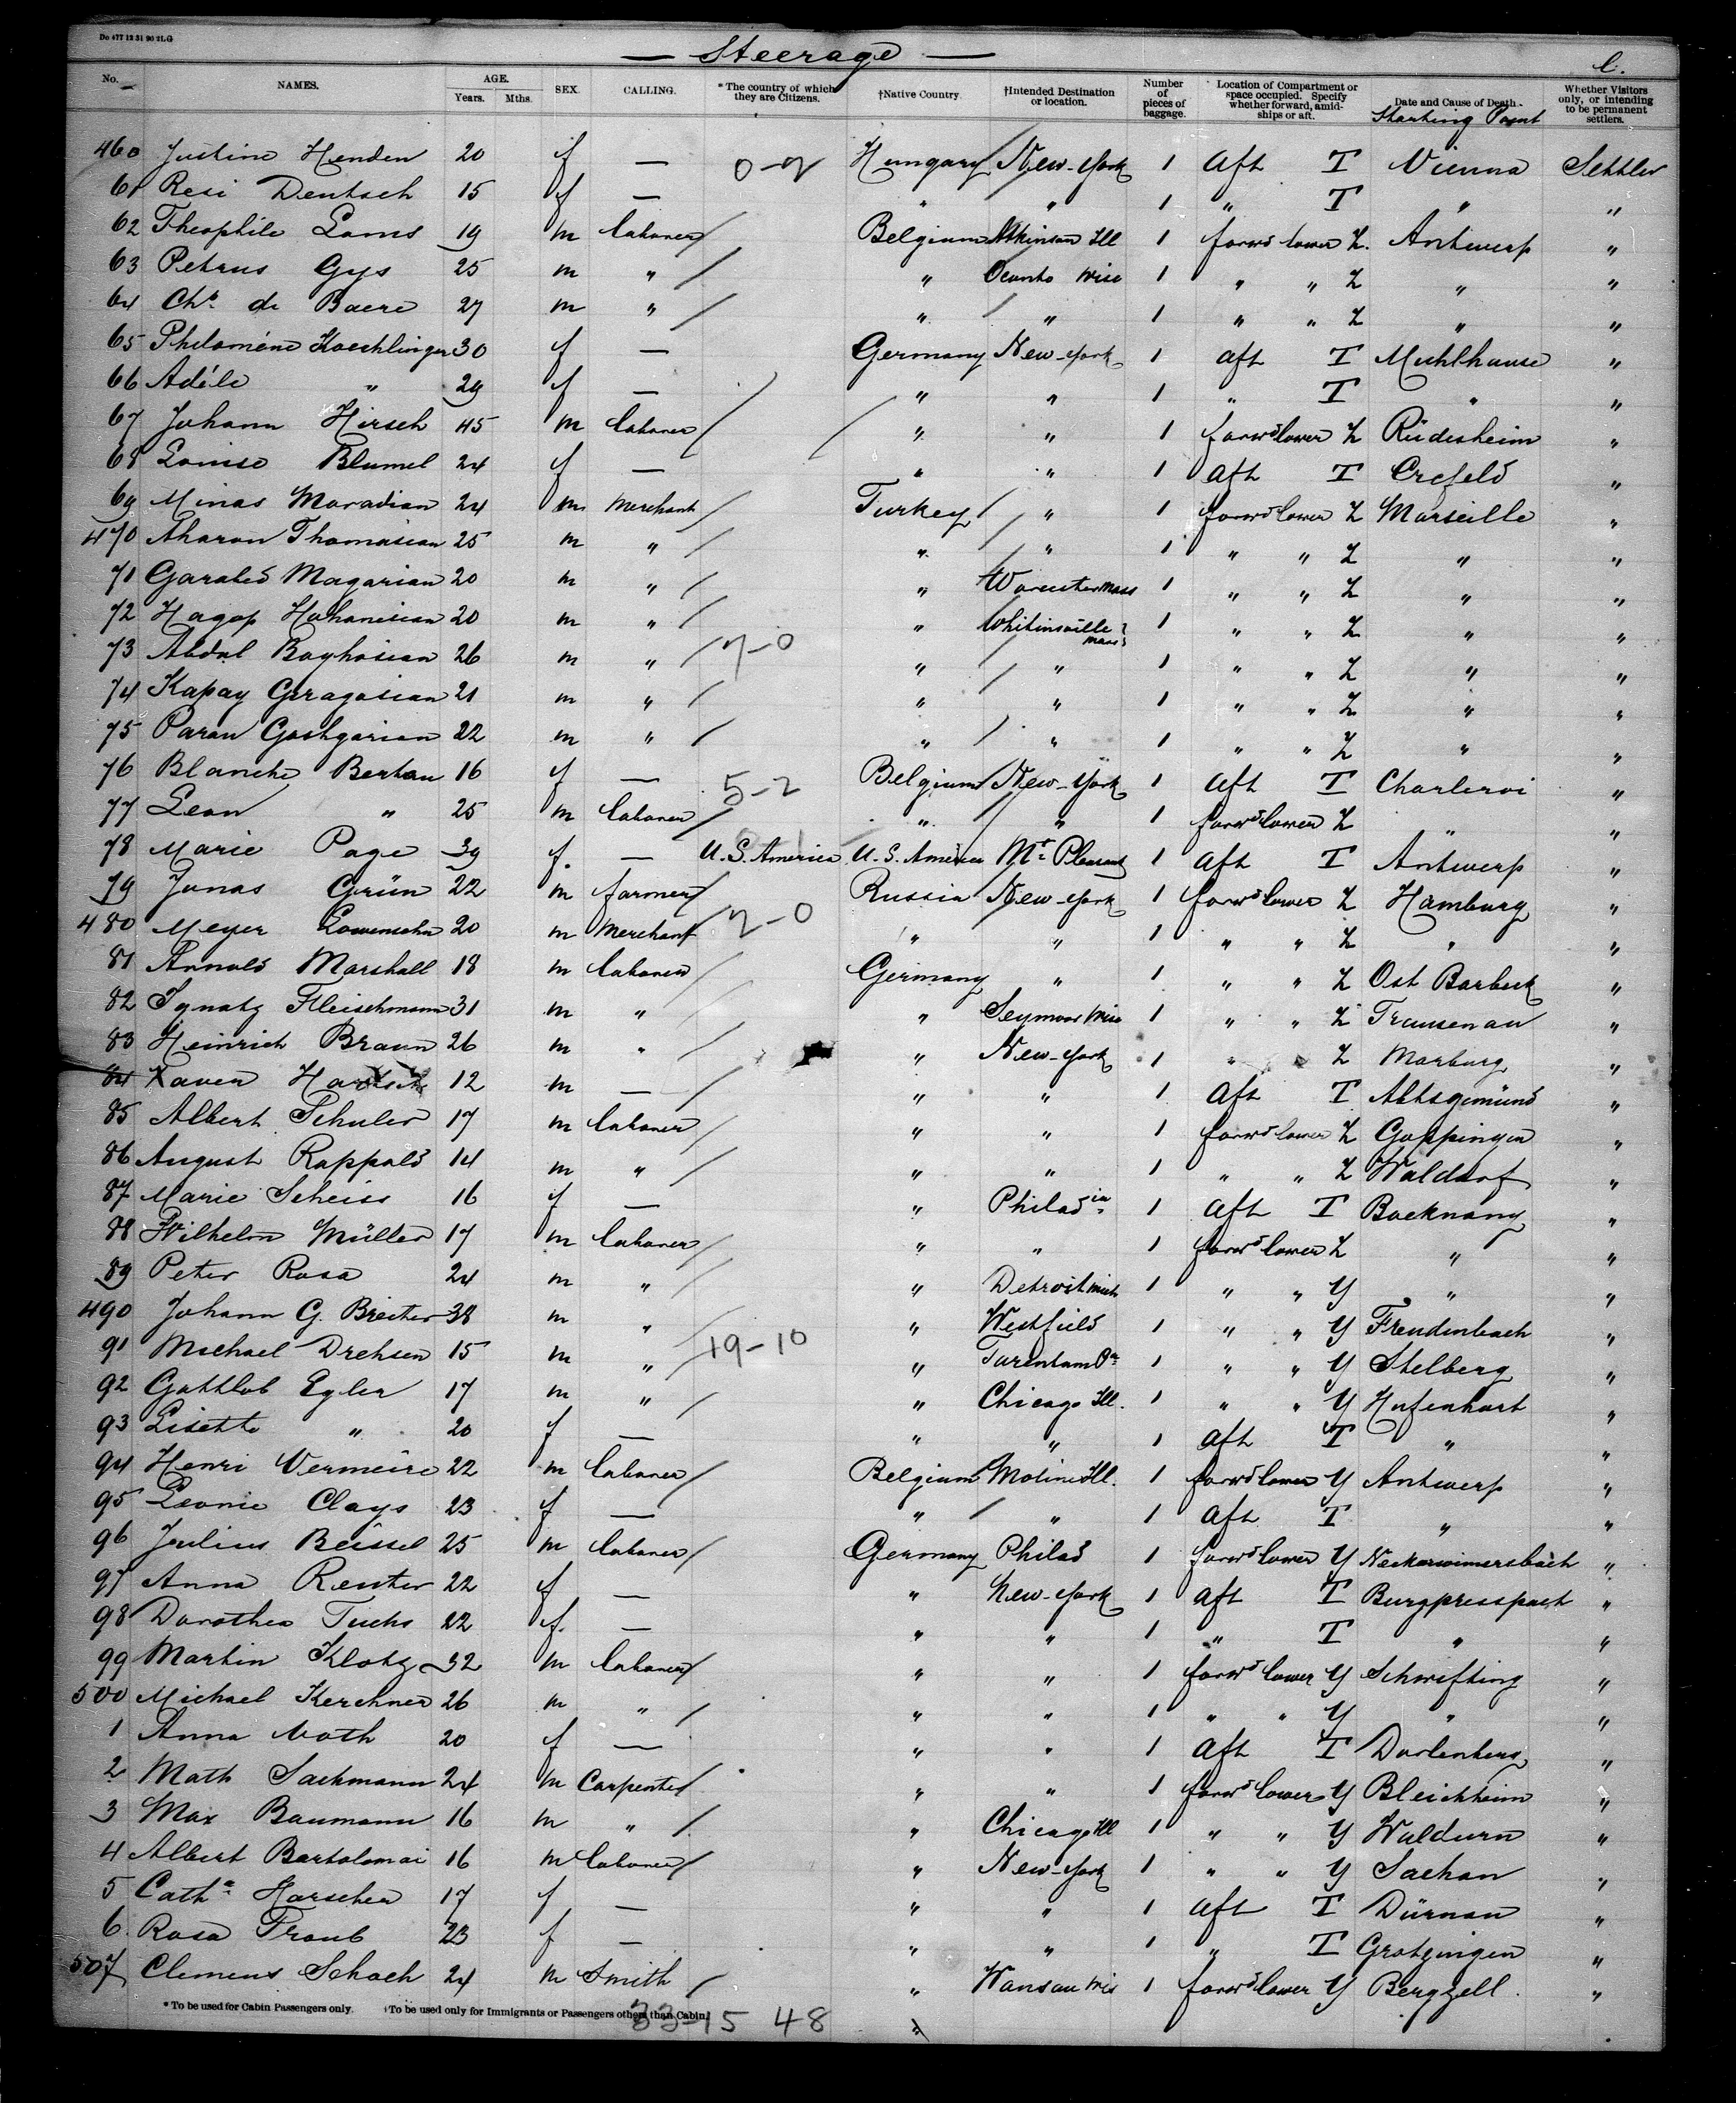 Do 477 12 31 90 2LG
— Steerage —
C.
No. NAMES. AGE. Years. Mths. SEX. CALLING. *The country of which they are Citizens. †Native Country. †Intended Destination or location. Number of pieces of baggage. Location of Compartment or space occupied. Specify whether forward, amidships or aft. Date and Cause of Death. Starting Point Whether Visitors only, or intending to be permanent settlers.
460 Justine Henden 20 f — 0-2 Hungary New-York 1 Aft T Vienna Settler
61 Resi Deutsch 15 f — " " 1 " T " "
62 Theophile Loms 19 m Laborer Belgium Atkinson Ill 1 forwd lower Z. Antwerp "
63 Petrus Gys 25 m " " Oconto Wisc 1 " " Z " "
64 Chs de Baere 27 m " " " 1 " " Z " "
65 Philoméne Koechlinger 30 f — Germany New-York 1 aft T Muhlhause "
66 Adéle " 29 f — " " 1 " T " "
67 Johann Hirsch 45 m Laborer " " 1 forwd lower Z Rüdesheim "
68 Louise Blumel 24 f — " " 1 Aft T Crefeld "
69 Minas Moradian 24 m Merchant Turkey " 1 forwd lower Z Marseille "
470 Aharon Thomasian 25 m " " " 1 " " Z " "
71 Garabed Magarian 20 m " " Worcester Mass 1 " " Z " "
72 Hagop Hohanisian 20 m " " Whitinsville Mass 1 " " Z " "
73 Abdal Boghosian 26 m " 7-0 " " 1 " " Z " "
74 Kapay Giragosian 21 m " " " 1 " " Z " "
75 Paran Goshgarian 22 m " " " 1 " " Z " "
76 Blanche Bertau 16 f — 5-2 Belgium New-York 1 aft T Charleroi "
77 Leon " 25 m Laborer " " 1 forwd lower Z " "
78 Marie Page 39 f. — U.S. America U.S. America Mt Pleasant 1 aft T Antwerp "
79 Jonas Grün 22 m farmer Russia New-York 1 forwd lower Z Hamburg "
480 Meyer Lowensohn 20 m Merchant 2-0 " " 1 " " Z " "
81 Arnold Marshall 18 m Laborer Germany " 1 " " Z Ost Barbeck "
82 Ignatz Fleischmann 31 m " " Seymour Wisc 1 " " Z Trausenau "
83 Heinrich Braun 26 m " " New-York 1 " " Z Marburg "
84 Xaver 12 m — " " 1 Aft T Abtsgemünd "
85 Albert Schuler 17 m Laborer " " 1 forwd lower Z Goppingen "
86 August Rappold 14 m " " " 1 " " Z Waldorf "
87 Marie Scheiss 16 f — " Philadia 1 aft T Backnang "
88 Wilhelm Müller 17 m Laborer " " 1 forwd lower Z " "
89 Peter Rosa 24 m " " Detroit Mich 1 " " Y " "
490 Johann G. Breiter 38 m " " Westfield 1 " " Y Freudenbach "
91 Michael Drehsen 15 m " 19-10 " Tarentam Pa 1 " " Y Stelberg "
92 Gottlob Egler 17 m " " Chicago Ill. 1 " " Y Hufenhart "
93 Lisette " 20 f — " " 1 aft T " "
94 Henri Vermeire 22 m Laborer Belgium Moline Ill. 1 forwd lower Y Antwerp "
95 Leonie Clays 23 f — " " 1 Aft T " "
96 Julius Beissel 25 m Laborer Germany Philad 1 forwd lower Y Neckarwimersbach "
97 Anna Renter 22 f — " New-York 1 aft T Burgpresspach "
98 Dorothea Fuchs 22 f. — " " 1 " T " "
99 Martin Klotz 32 m Laborer " " 1 forwd lower Y Schwifting "
500 Michael Kerchner 26 m " " " 1 " " Y " "
1 Anna Noth 20 f — " " 1 Aft T Dorlenberg "
2 Math Sackmann 24 m Carpenter " " 1 forwd lower Y Bleichheim "
3 Max Baumann 16 m " " Chicago Ill 1 " " Y Waldurn "
4 Albert Bartolomai 16 m Laborer " New-York 1 " " Y Sachan "
5 Catha Horscher 17 f — " " 1 aft T Dürnan "
6 Rosa Traub 23 f — " " 1 " T Grotzingen "
507 Clemens Schoch 24 m Smith " Wansau Wis 1 forwd lower Y Bergzell. "
*To be used for Cabin Passengers only. †To be used only for Immigrants or Passengers others than Cabin.
33-15 48 "